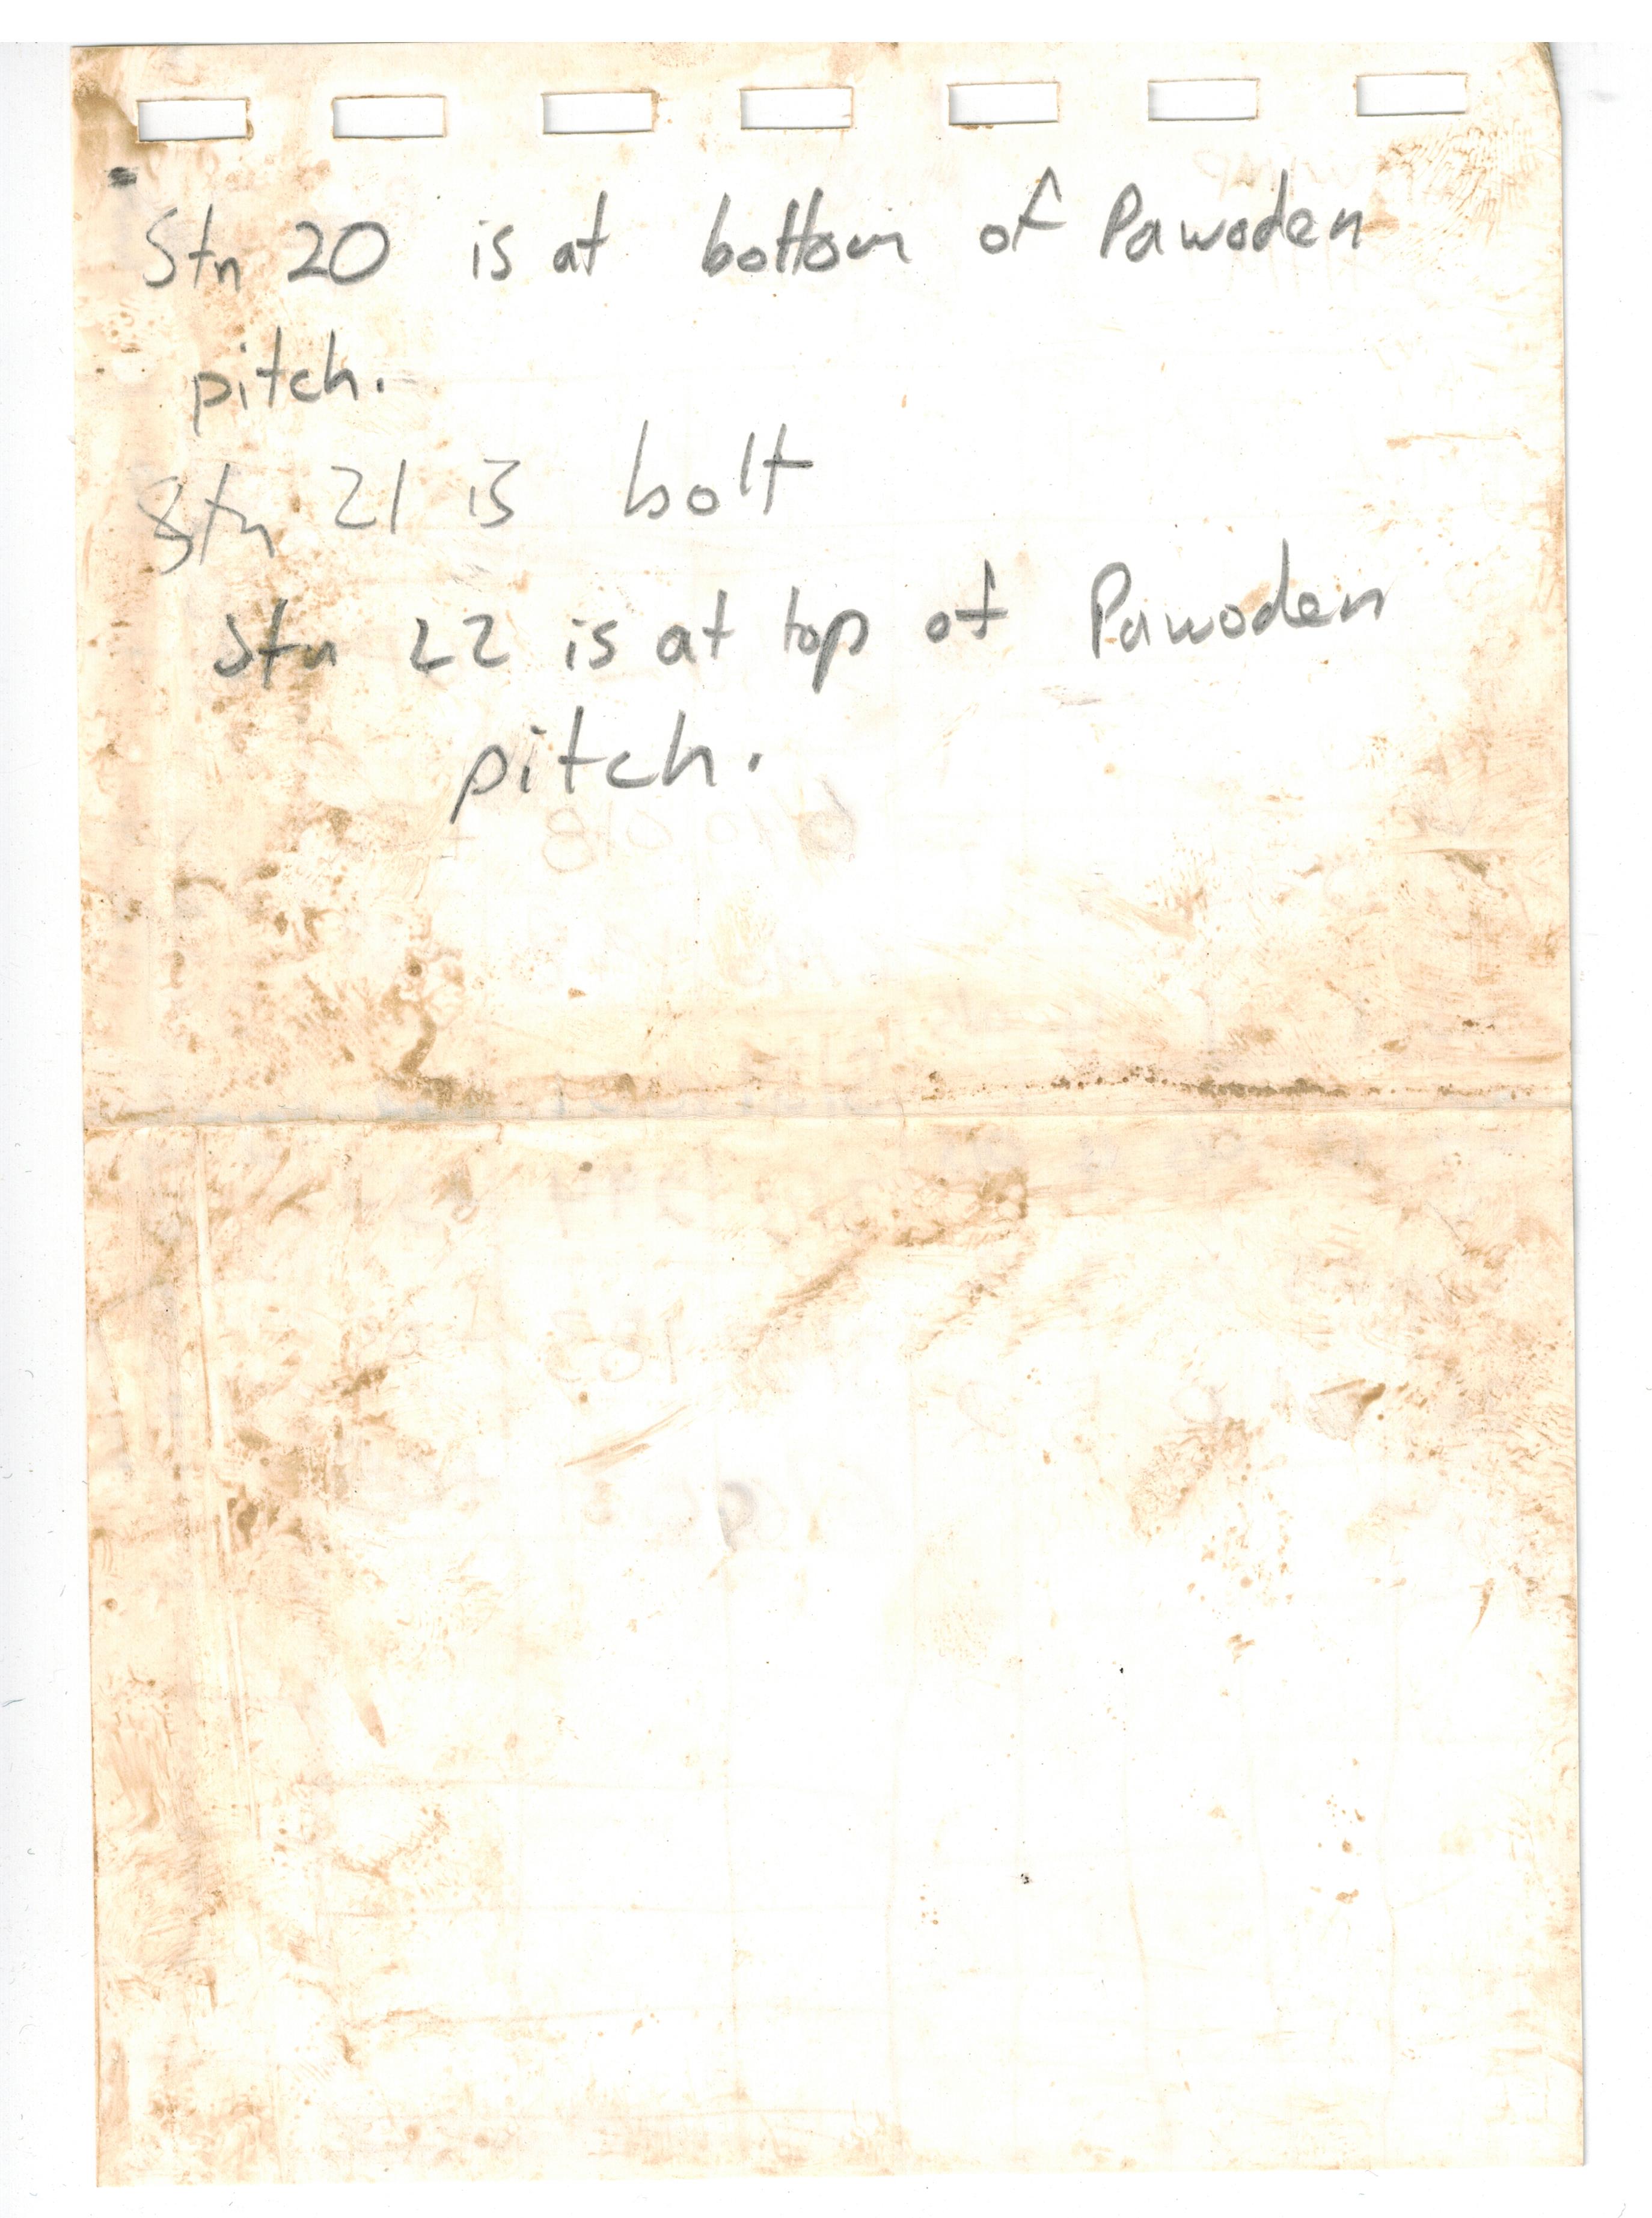 Stn 20 is at bottom of Pawoden
pitch.
Stn 21 is bolt
Stn 22 is at top of Pawoden
pitch.